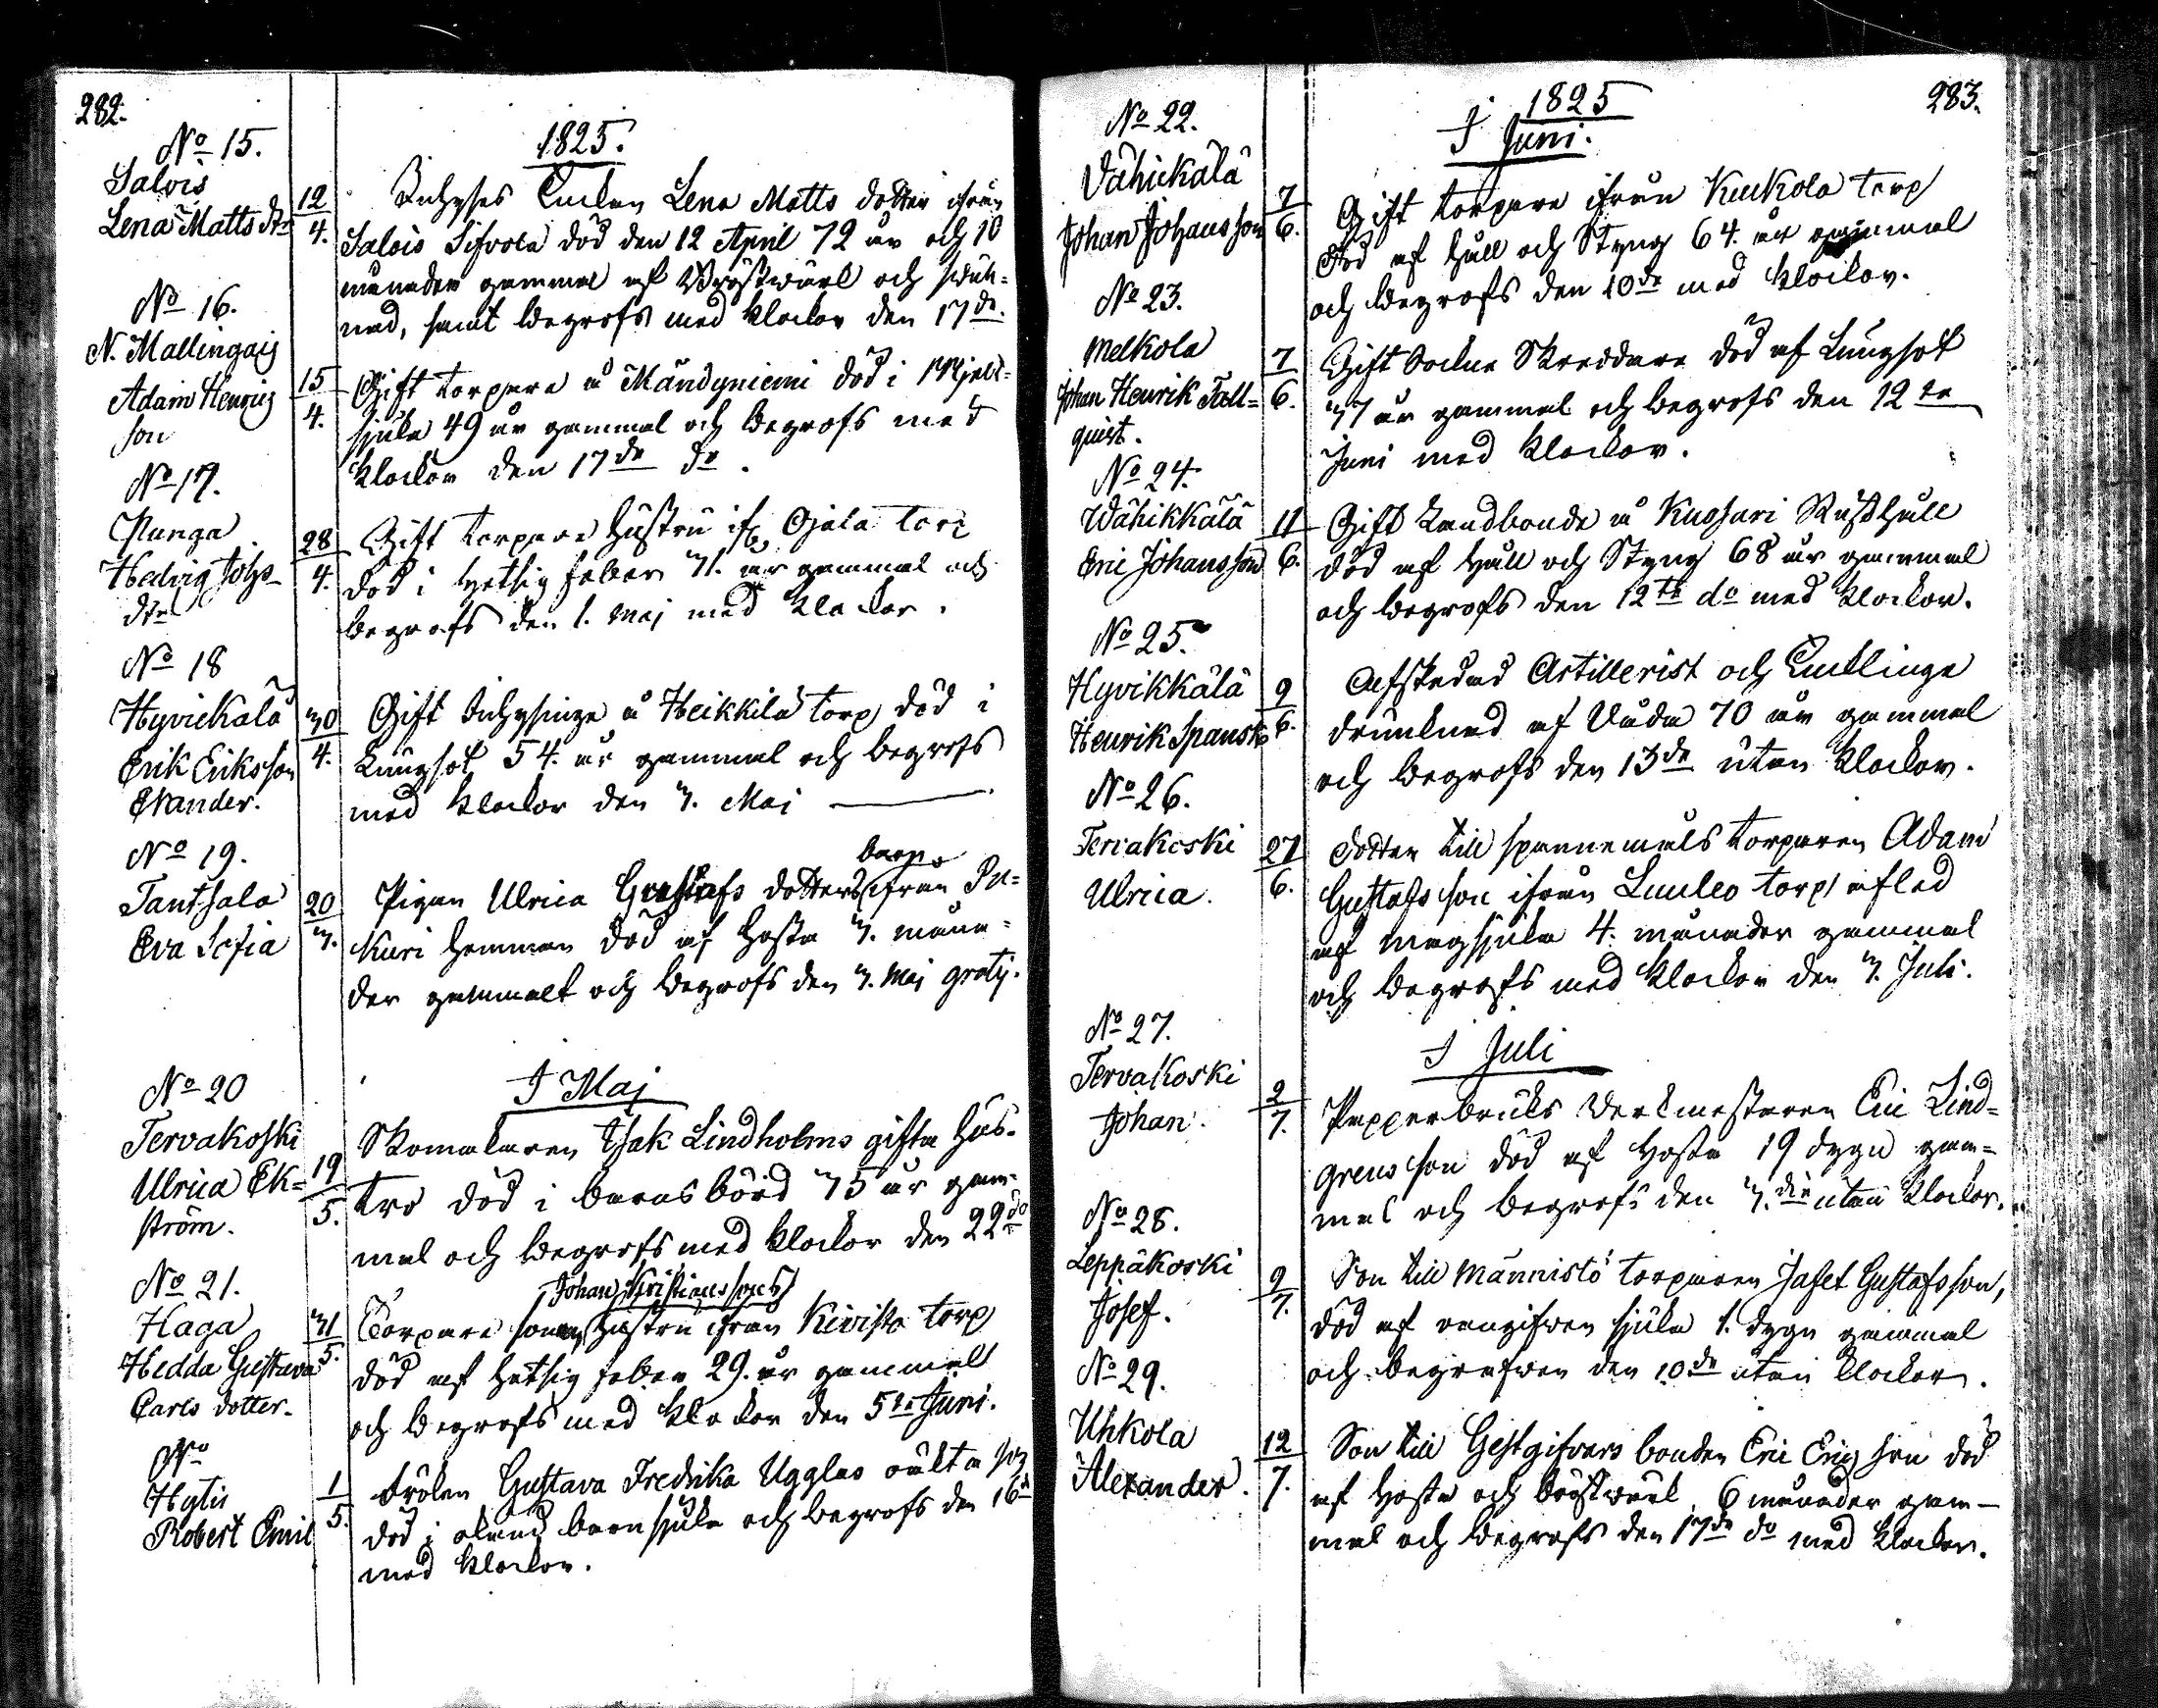 282.
1825.
No 15.
Salois
Lena Matts dr
12
4.
Inhyses Enkan Lena Matts dotter ifrån
Salois Sifvola död den 12 April 72 år och 10
månader gammal af Bröstvärk och
nad, samt begrofs med klockor den 17de.
No 16.
N. Mallinga
Adam Henrics
son
15
4.
Gift torpare å Mändyniemi död i
sjuka 49 år gammal och begrofs med
klockor den 17de do.
No 17.
Nunga
Hedvig Johs
dr
28
4.
Gift torpare hustru ifr Ojala torp
död i hetsig feber 71. år gammal och
begrafs den 1. Maj med klockor.
No 18
Hyvickälä
Erik Eriksson
Evander.
30
4.
Gift Inhysinge å Heikkilä torp död i
Lungsot 54. år gammal och begrofs
med klockor den 7. Maj
No 19.
Tantsala
Eva Sofia
20
3.
barn
Pigan Ulrica Gustafs dotters ifrån Pu=
kuri hemman död af hosta 3. måna=
der gammalt och begrofs den 7. Maj gratis.
I Maj
No 20
Tervakoski
Ulrica Ek=
ström.
19
5.
Skomakaren Isak Lindholms gifta hus-
tro död i barnsbörd 35 år gam-
mal och begrofs med klockor den 22do
No 21.
Haga
Hedda Gustava
Carls dotter.
31
5.
Johan Kristians sons
Torpare sonens hustru ifrån Kivisto torp
död af hetsig feber 29. år gammalt
och begrofs med klockor den 5te Juni.
No
Hytis
Robert Emil
1
5.
Frölen Gustava Fredrika Ugglas oäkta son
död i okänd barnsjuka och begrofs den 16de
med klockor.
283.
1825
I Juni.
No 22.
Vähickälä
Johan Johansson
7
6.
Gift torpare ifrån Kuckola torp
död af håll och styng 64. år gammal
och begrofs den 10de med klockor.
No 23.
Melkola
Johan Henrik Fall=
quist.
7
6.
Gift Sockne Skreddare död af Lungsot
37 år gammal och begrofs den 12te
Juni med klockor.
No 24.
Wähikkälä
Eric Johansson
11
6.
Gift Landbonde å Kuosari Rusthåll
död af håll och styng 68 år gammal
och begrofs den 12te do med klockor.
No 25.
Hyvikkälä
Henrik Spansk
9
6.
Afskedad Artillerist och Enklinge
drunknad af Våda 70 år gammal
och begrofs den 13de utan klockor.
No 26.
Tervakoski
Ulrica.
27
6.
Dotter till spannemåls torparen Adam
Gustafsson ifrån Lauleo torp afled
af magsjuka 4. månader gammal
och begrofs med klockor den 3. Juli.
I Juli
No 27.
Tervakoski
Johan.
2
7.
Pappersbruks Verkmästaren Eric Lind=
grens son död af hosta 19 dygn gam=
mal och begrofs den 3. die utan klockor.
No 28.
Leppäkoski
Josef.
9
7.
Son till Männistö torparen Jafet Gustafsson,
död af oangifven sjuka 1. dygn gammal
och begrafven den 10de utan klockor.
No 29.
Uhkola
Alexander.
12
7.
Son till Gestgifvars bonden Eric Erics son död
af hosta och bröstvärk, 6 månader gam-
mal och begrofs den 17de do med klockor.